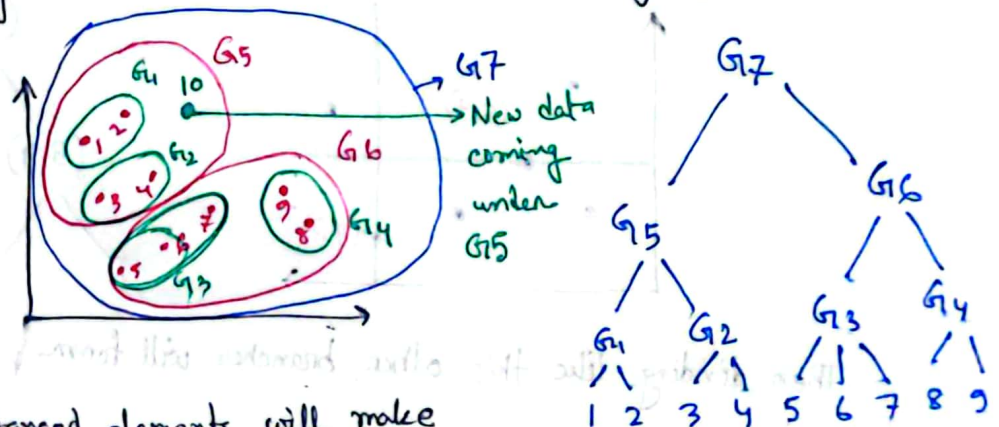 G5
G1 10
1 2
G2
3 4
G6
7
6
5
G3
9
8
G4
G7
New data
coming
under
G5
G7
G5 G6
G1 G2 G3 G4
1 2 3 4 5 6 7 8 9
elements will make